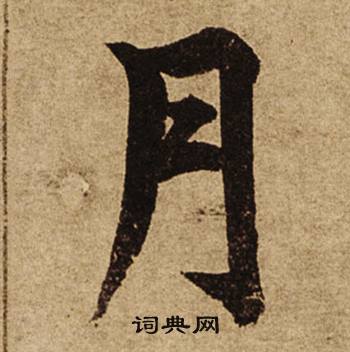 月
词典网